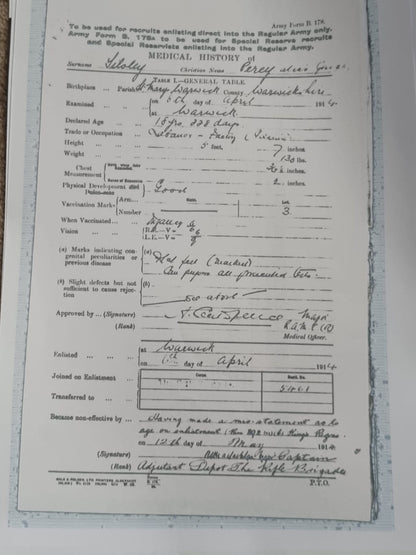 Army Form B. 178.
To be used for recruits enlisting direct into the Regular Army only.
Army Form B. 178A to be used for Special Reserve recruits
and Special Reservists enlisting into the Regular Army.
MEDICAL HISTORY of
Surname Christian Name Percy alias
TABLE I.—GENERAL TABLE.
Birthplace ... Parish St Mary Warwick County Warwickshire
Examined ... on 6th day of April 1914
at Warwick
Declared Age ... 18 yrs. 228 days
Trade or Occupation ...
Height ... 5 feet, 7 inches
Weight ... 130 lbs.
Chest Measurement inches
Range of Expansion 2 inches
Physical Development Good
Vaccination Marks Arm... Right. Left.
Number 3.
When Vaccinated... Infancy
Vision ... R.E.—V= 6/6
L.E.—V=
(a) Marks indicating congenital peculiarities or previous disease (a) Flat feet (marked)
(b) Slight defects but not sufficient to cause rejection (b)
see above
Approved by ... (Signature)
(Rank) Major R.A.M.C. (R)
Medical Officer.
Enlisted ... at Warwick
on 6th day of April 1914
Corps. Regtl. No.
Joined on Enlistment
Transferred to ...
Became non-effective by... Having made a mis-statement as to
age on enlistment Kings Regns.
on 12th day of May 1914
(Signature) Captain
(Rank) Adjutant Depot The Rifle Brigade
P.T.O.